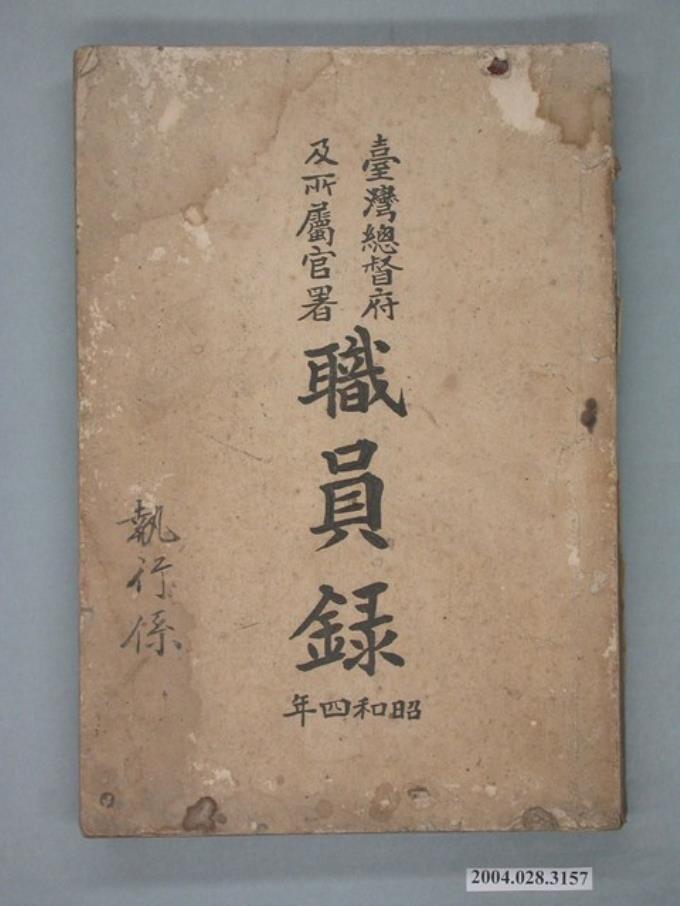 臺灣總督府
及所屬官署
職員録
昭和四年
執行係
2004.028.3157